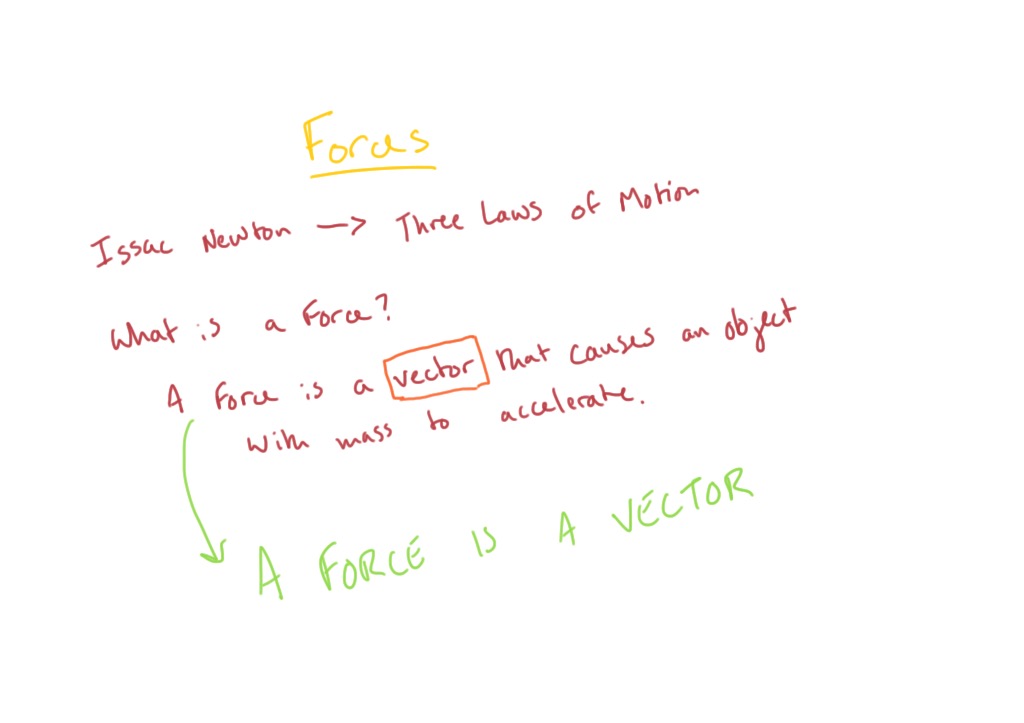 Forces
Issac Newton → Three Laws of Motion
What is a Force?
A Force is a vector that causes an object
with mass to accelerate.
A FORCE IS A VECTOR